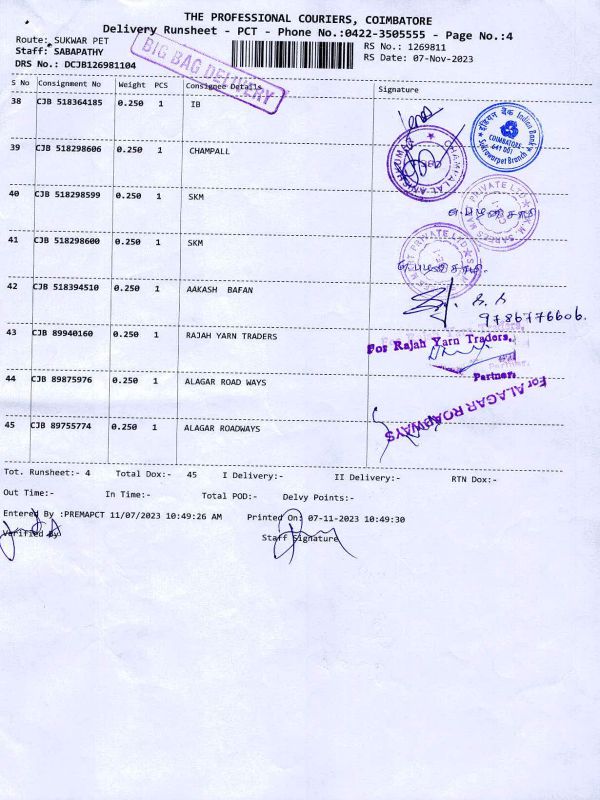 THE PROFESSIONAL COURIERS, COIMBATORE
Delivery Runsheet - PCT - Phone No.:0422-3505555 - Page No.:4
Route: SUKWAR PET
RS No.: 1269811
Staff: SABAPATHY
RS Date: 07-Nov-2023
DRS No.: DCJB126981104
BIG BAG DELIVERY
S No Consignment No Weight PCS Consignee Details Signature
38 CJB 518364185 0.250 1 IB
इंडियन बैंक Indian Bank
COIMBATORE-
641 001
Sukrawarpet Branch
39 CJB 518298606 0.250 1 CHAMPALL
40 CJB 518298599 0.250 1 SKM
41 CJB 518298600 0.250 1 SKM
42 CJB 518394510 0.250 1 AAKASH BAFAN
9786776606.
43 CJB 89940160 0.250 1 RAJAH YARN TRADERS
For Rajah Yarn Traders,
Partner.
44 CJB 89875976 0.250 1 ALAGAR ROAD WAYS
For ALAGAR ROADWAYS
45 CJB 89755774 0.250 1 ALAGAR ROADWAYS
Tot. Runsheet:- 4 Total Dox:- 45 I Delivery:- II Delivery:- RTN Dox:-
Out Time:- In Time:- Total POD:- Delvy Points:-
Entered By :PREMAPCT 11/07/2023 10:49:26 AM Printed On: 07-11-2023 10:49:30
Verified By Staff Signature